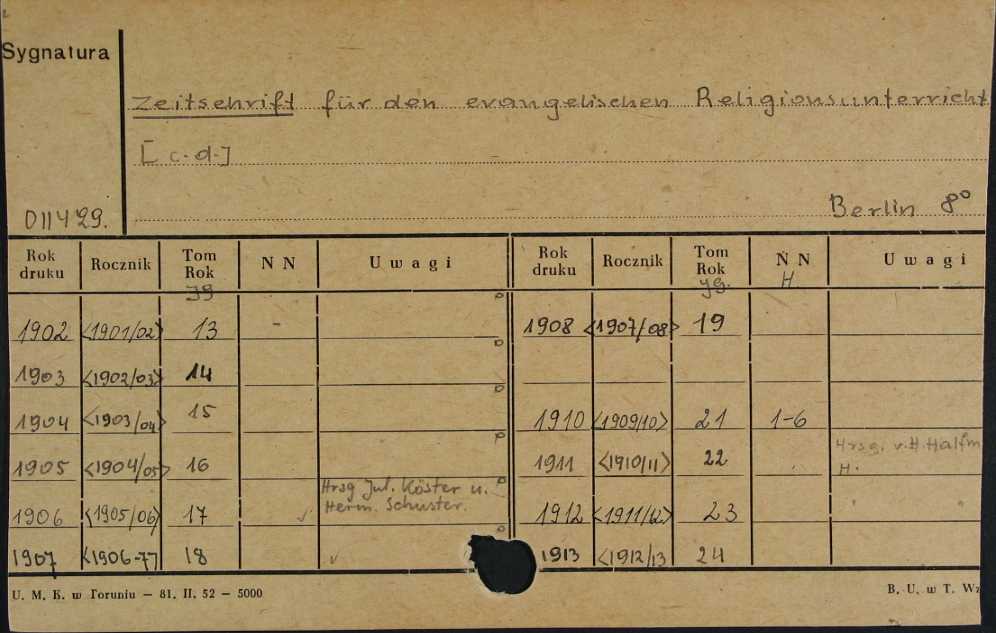 Sygnatura
Zeitschrift für den evangelischen Religionsunterricht
[c.d.]
011429.
Berlin 8°
Rok druku Rocznik Tom Rok N N Uwagi Rok druku Rocznik Tom Rok N N Uwagi
Jg Jg. H.
1902 <1901/02> 13 - 1908 <1907/08> 19
1903 <1902/03> 14
1904 <1903/04> 15 1910 <1909/10> 21 1-6
1905 <1904/05> 16 1911 <1910/11> 22 Hrsg. v. H. Halfm
H.
Hrsg Jul. Köster u.
1906 <1905/06> 17 Herm. Schuster. 1912 <1911/12> 23
1907 <1906-77 18 1913 <1912/13 24
U. M. K. w Toruniu — 81. II. 52 — 5000 B. U. w T. Wz